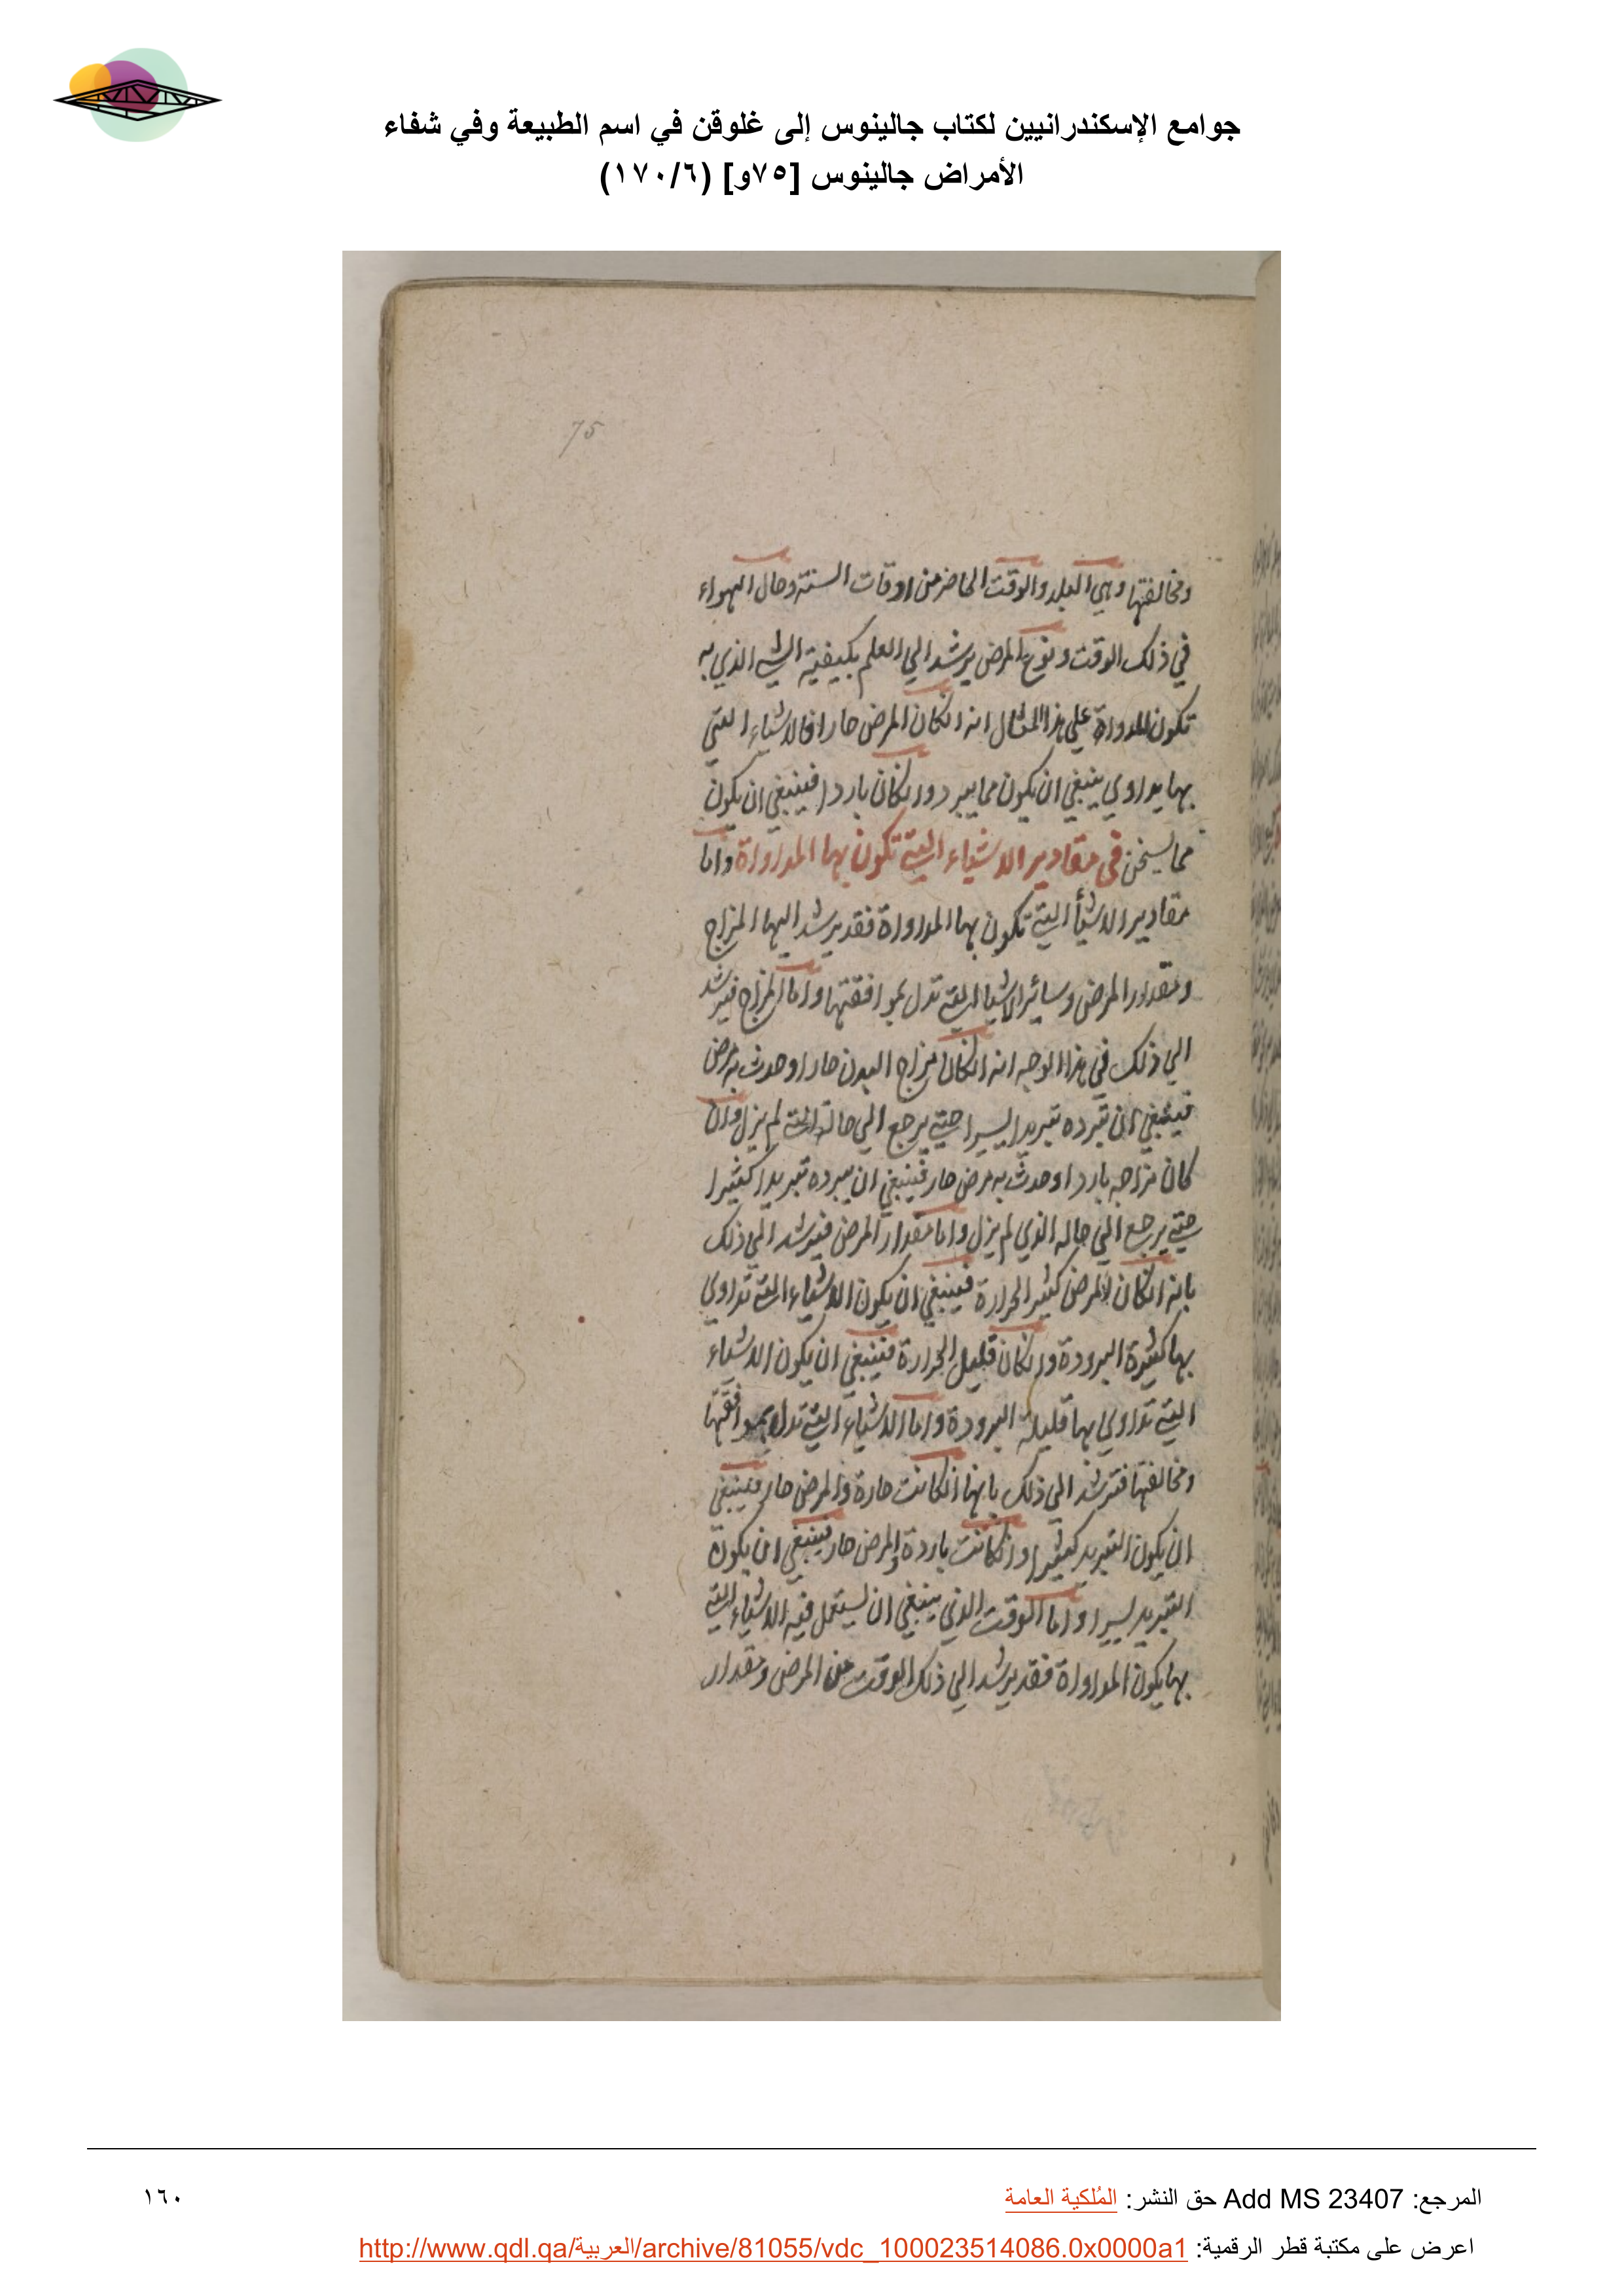 جوامع الإسكندرانيين لكتاب جالينوس إلى غلوقن في اسم الطبيعة وفي شفاء
الأمراض جالينوس [٧٥و] (١٧٠/٦)
75
ومخالفتها وهي البلد والوقت الحاضر من اوقات السنة وحال الهواء
في ذلك الوقت ونوع المرض يرشد الي العلم بكيفية الشي الذي به
تكون المداواة علي هذا المثال انه انكان المرض حارا فالاشياء التي
بها يداوي ينبغي ان يكون مما يبرد وانكان باردا فينبغي ان يكون
مما يسخن في مقادير الاشياء التي تكون بها المداواة واما
مقادير الاشيأ التي تكون بها المداواة فقد يرشد اليها المزاج
ومقدار المرض وسائر الاشيا التي تدل بموافقتها واما المزاج فيرشد
الي ذلك في هذا الوجه انه انكان مزاج البدن حارا وحدث به مرض
فينبغي ان تبرده تبريدا يسيرا حتي يرجع الي حاله التي لم يزل وان
كان مزاجه باردا وحدث به مرض حار فينبغي ان يبرده تبريدا كثيرا
حتي يرجع الي حاله الذي لم يزل واما مقدار المرض فيرشد الي ذلك
بانه انكان المرض كثير الحرارة فينبغي ان يكون الاشياء التي تداوي
بها كثيرة البرودة وانكان قليل الحرارة فينبغي ان يكون الاشياء
التي تداوي بها قليلة البرودة واما الاشياء التي تدل بموافقتها
ومخالفتها فترشد الي ذلك بانها انكانت حارة والمرض حار فينبغي
ان يكون التبريد كثيرا وانكانت باردة والمرض حار فينبغي ان يكون
التبريد يسيرا واما الوقت الذي ينبغي ان يستعمل فيه الاشياء التي
بها يكون المداواة فقد يرشد الي ذلك الوقت من المرض ومقدار
المرجع: Add MS 23407 حق النشر: المُلكية العامة
١٦٠
اعرض على مكتبة قطر الرقمية: http://www.qdl.qa/العربية/archive/81055/vdc_100023514086.0x0000a1